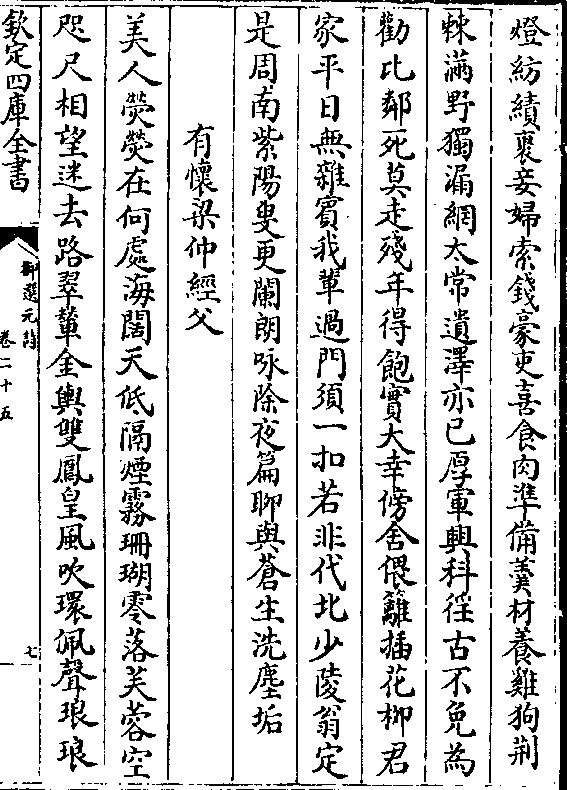 燈紡績裹妾婦索錢豪吏喜食肉準備羮材養雞狗荆
棘滿野獨漏網太常遺澤亦已厚軍興科徭古不免為
勸比鄰死莫走殘年得飽實大幸傍舍偎籬插花柳君
家平日無雜賓我輩過門須一扣若非代北少陵翁定
是周南紫陽叟更闌朗咏除夜篇聊與蒼生洗塵垢
有懷梁仲經父
美人熒熒在何處海闊天低隔煙霧珊瑚零落芙蓉空
咫尺相望迷去路翠輦金輿雙鳳皇風吹環佩聲琅琅
欽定四庫全書
御選元詩
卷二十五
七